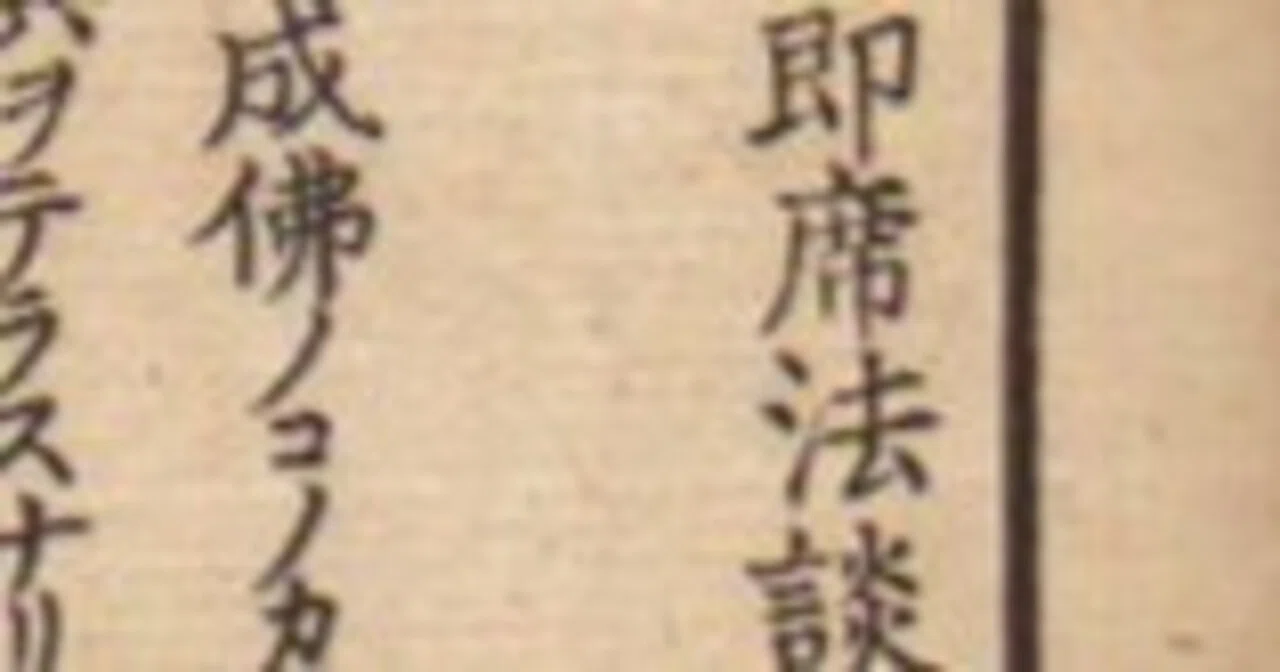 即席法談
成佛ノコノカ
ヲテラスナリ